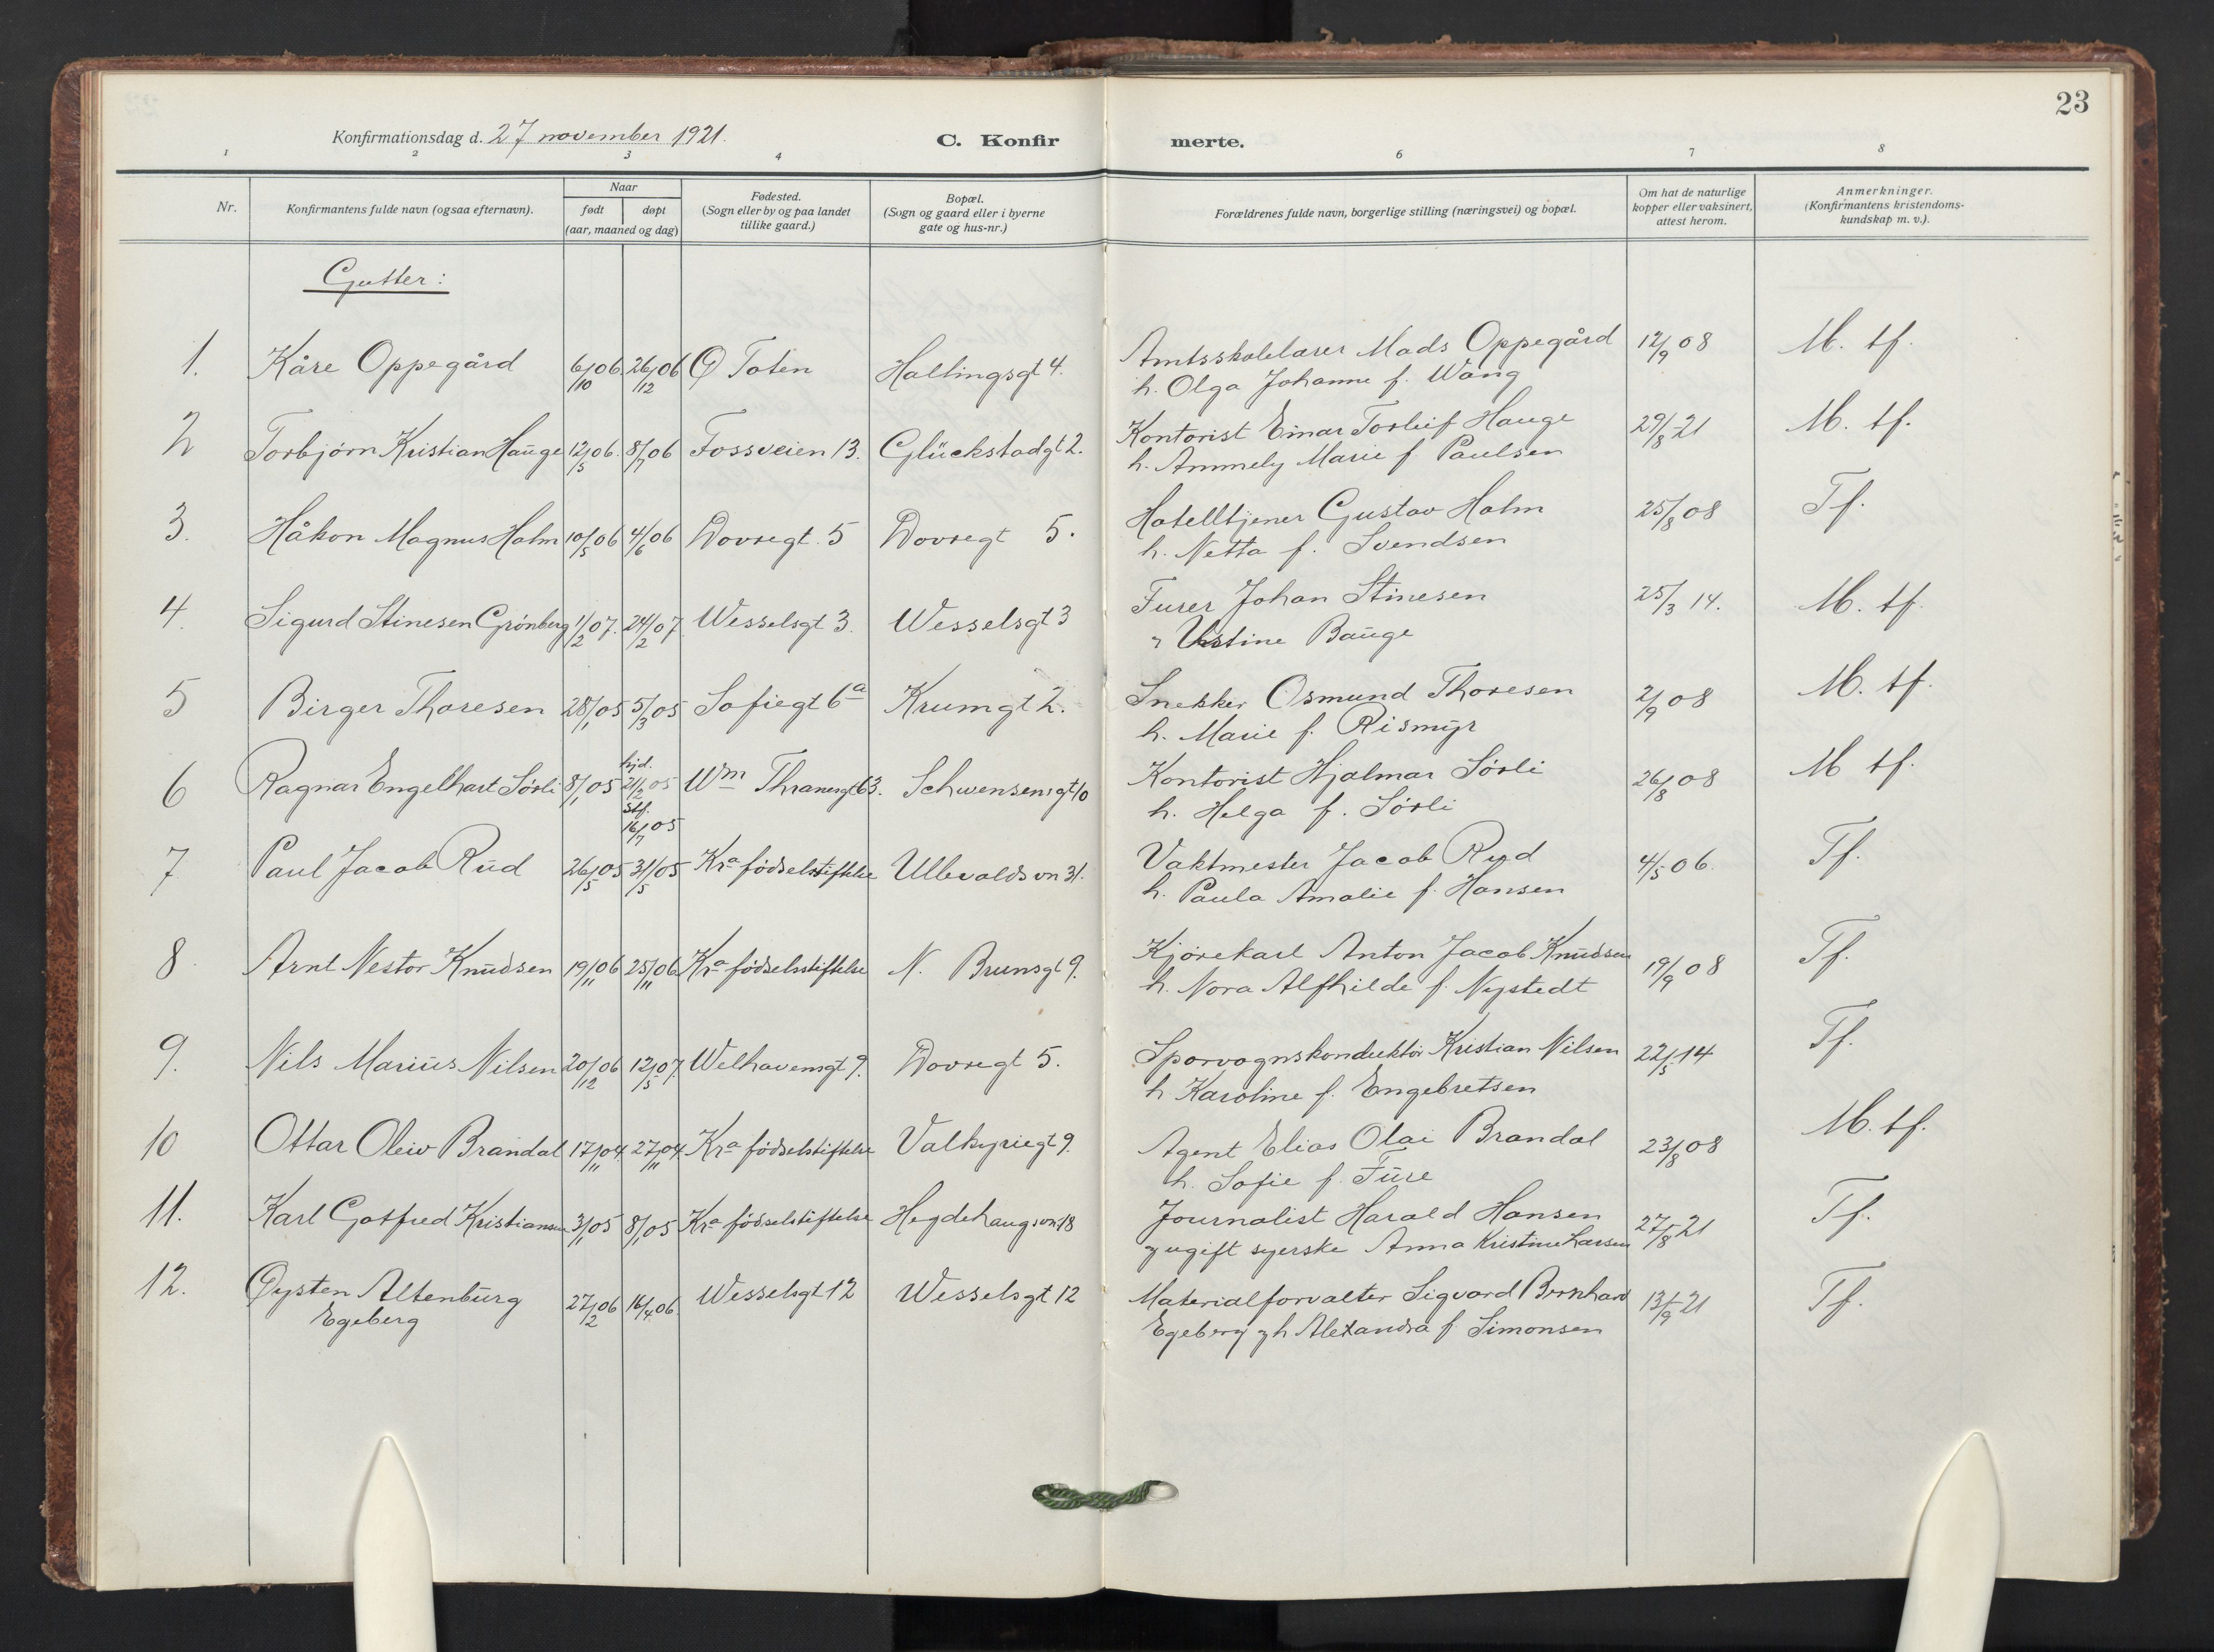 23
Konfirmationsdag d. 27 november 1921.
C. Konfir merte.
1 2 3 4 6 7 8
Nr.
Konfirmantens fulde navn (ogsaa efternavn).
Naar
født døpt
(aar, maaned og dag)
Fødested.
(Sogn eller by og paa landet
tillike gaard.)
Bopæl.
(Sogn og gaard eller i byerne
gate og hus-nr.)
Forældrenes fulde navn, borgerlige stilling (næringsvei) og bopæl.
Om hat de naturlige
kopper eller vaksinert,
attest herom.
Anmerkninger.
(Konfirmantens kristendoms-
kundskap m. v.).
Gutter:
1. Kåre Oppegård 6/10 06 26/12 06 Ø Toten Hallingsgt 4. Amtsskolelærer Mads Oppegård 12/9 08 M. tf.
h. Olga Johanne f. Wang
2 Torbjørn Kristian Hauge 12/5 06. 8/7 06 Fossveien 13. Glückstadgt 2. Kontorist Einar Torleif Hauge 29/8-21 M. tf.
h. Ammely Marie f Paulsen
3. Håkon Magnus Holm 10/5 06 4/6 06 Dovregt. 5 Dovregt 5. Hotelltjener Gustav Holm 25/8 08 Tf.
h. Netta f. Svendsen
4. Sigurd Stinesen Grønberg 1/2 07. 24/2 07. Wesselsgt 3. Wesselsgt 3 Furer Johan Stinesen 25/3 14. M. tf.
Bauge
5 Birger Thoresen 28/1 05 5/3 05 Sofiegt 6a Krumgt 2. Snekker Osmund Thoresen 2/9 08 M. tf.
h. Marie f. Rismyr
6 Ragnar Engelhart Sørli 8/1 05 hjd. 21/2 05 Wm Thranesgt 63. Schwensensgt 10 Kontorist Hjalmar Sørli 26/8 08 M tf.
stf. 16/7 05 h. Helga f. Sørli
7 Paul Jacob Rud 26/5 05 31/5 05 Kra fødselsstiftelse Ullevaldsvn 31. Vaktmester Jacob Rud 4/5 06. Tf.
h. Paula Amalie f. Hansen
8 Arnt Nestor Knudsen 19/11 06 25/11 06 Kra fødselsstiftelse N. Brunsgt 9. Kjørekarl Anton Jacob Knudsen 19/9 08 Tf.
h. Nora Alfhilde f. Nystedt
9. Nils Marius Nilsen 20/12 06 12/5 07. Welhavensgt 9. Dovregt 5. Sporvognskonduktør Kristian Nilsen 22/5 14 Tf.
h Karoline f. Engebretsen
10 Ottar Oleiv Brandal 17/11 04. 27/11 04. Kra fødselstiftelse Valkyriegt 9. Agent Elias Olai Brandal 23/8 08 M. tf.
h. Sofie f. Fure
11. Karl Gotfred Kristiansen 3/1 05 8/1 05 Kra fødselstiftelse Hegdehaugsvn 18 Journalist Harald Hansen 27/8-21 Tf.
og ugift syerske Anna Kristine Larsen
12. Øysten Altenburg 27/2 06 16/4 06. Wesselsgt 12 Wesselsgt 12 Materialforvalter Sigvard Bernhard 13/9-21 Tf.
Egeberg Egeberg og h Alexandra f Simonsen